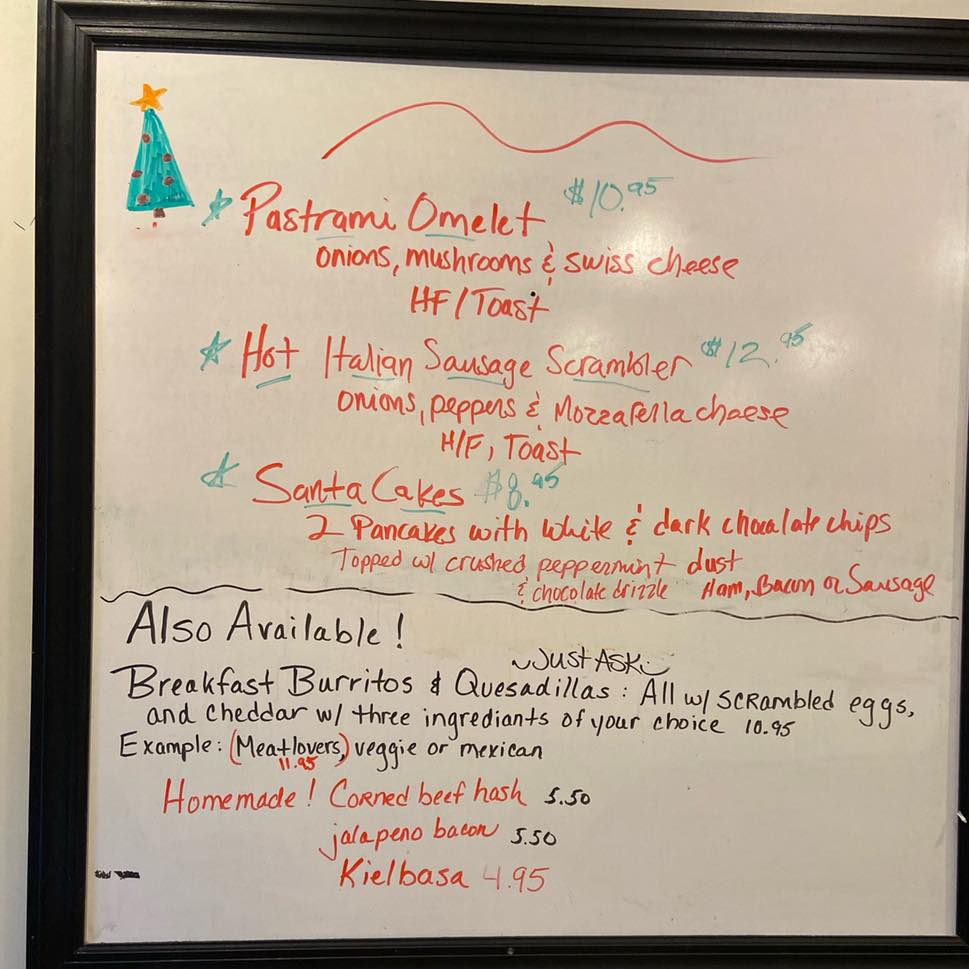 Pastrami Omelet $10.95
onions, mushrooms & swiss cheese
HF/Toast
Hot Italian Sausage Scrambler $12.95
onions, peppers & Mozzarella cheese
H/F, Toast
Santa Cakes $8.95
2 Pancakes with white & dark chocalate chips
Topped w/ crushed peppermint dust
& chocolate drizzle Ham, Bacon or Sausage
Also Available!
~Just ASK~
Breakfast Burritos & Quesadillas: All w/ scrambled eggs,
and cheddar w/ three ingrediants of your choice 10.95
Example: (Meatlovers,) veggie or mexican
11.95
Homemade! Corned beef hash 5.50
jalapeno bacon 5.50
Kielbasa 4.95